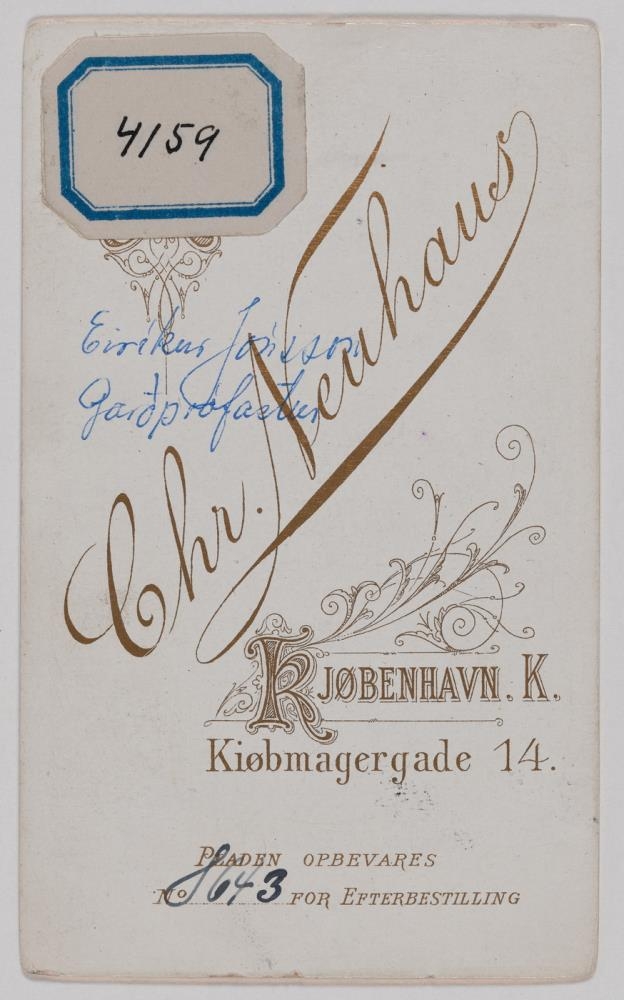 4159
Eiríkur Jónsson
Garðprófastur
Chr. Neuhaus
KJØBENHAVN. K.
Kiøbmagergade 14.
PLADEN OPBEVARES
No 8643 FOR EFTERBESTILLING